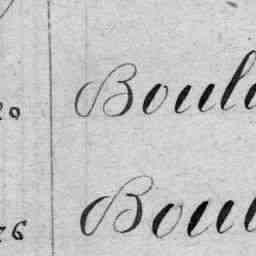 20 Boul
76 Boul